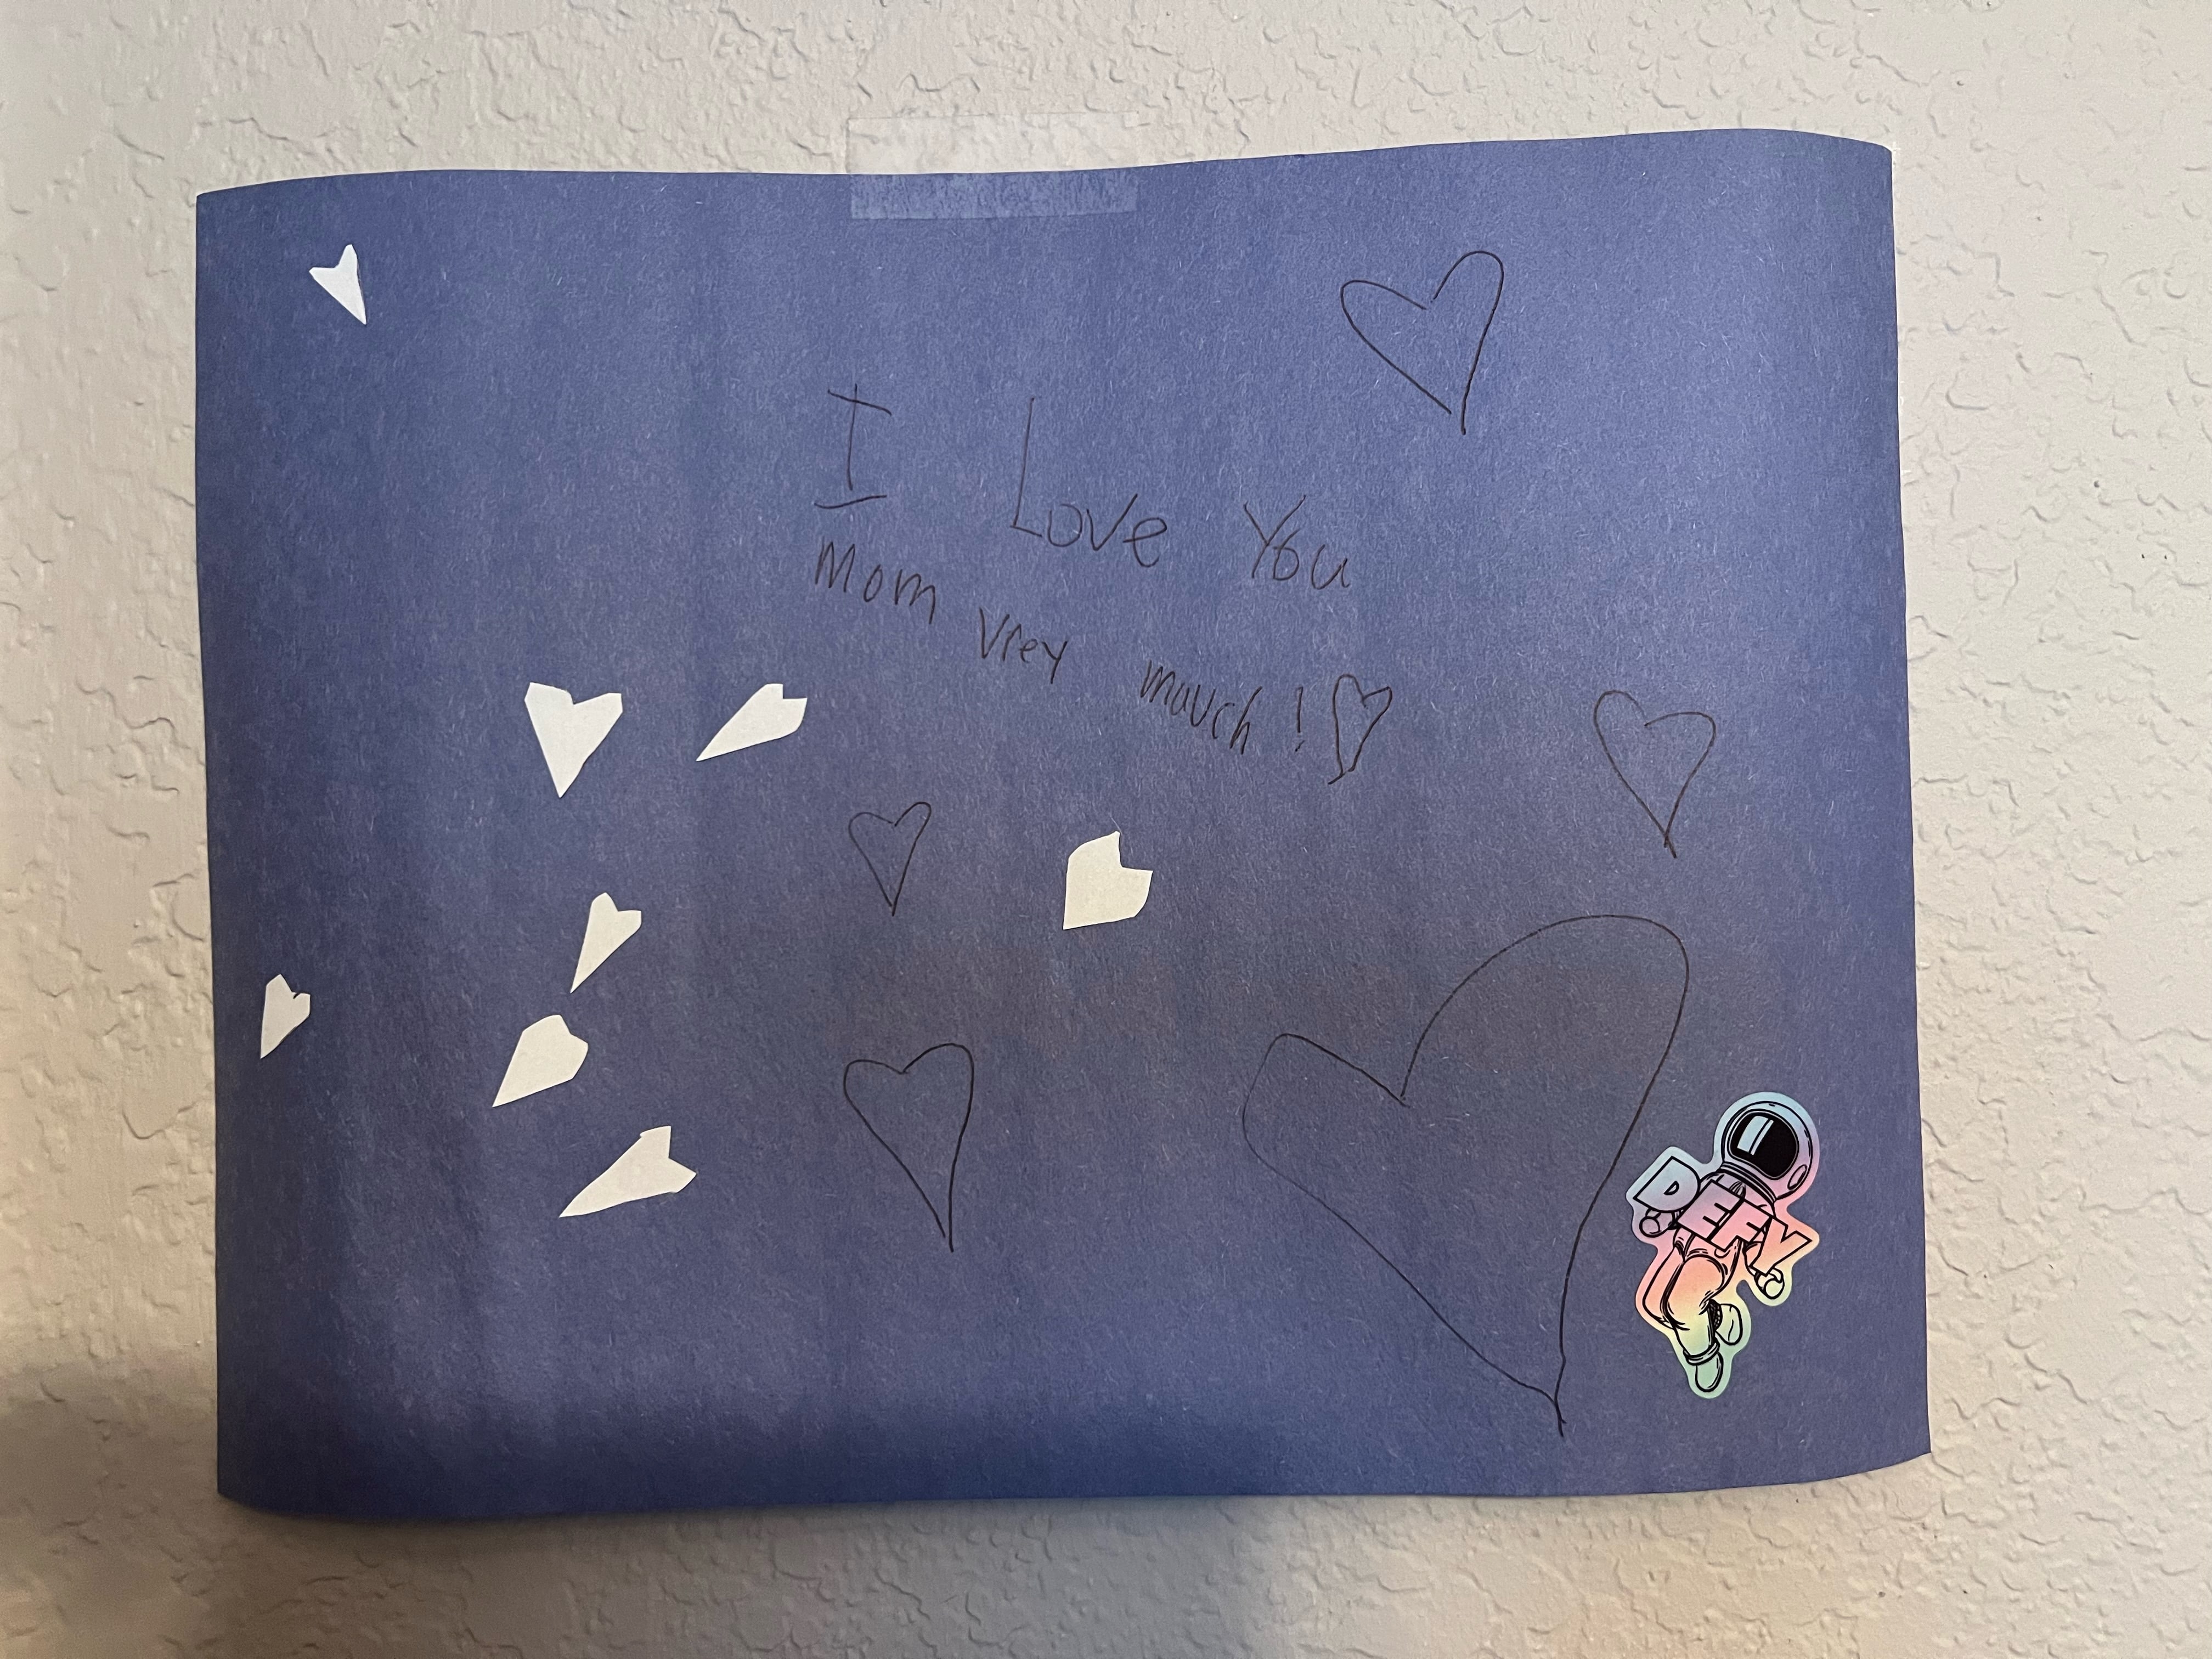 I Love You
Mom vrey mauch!
DEFY